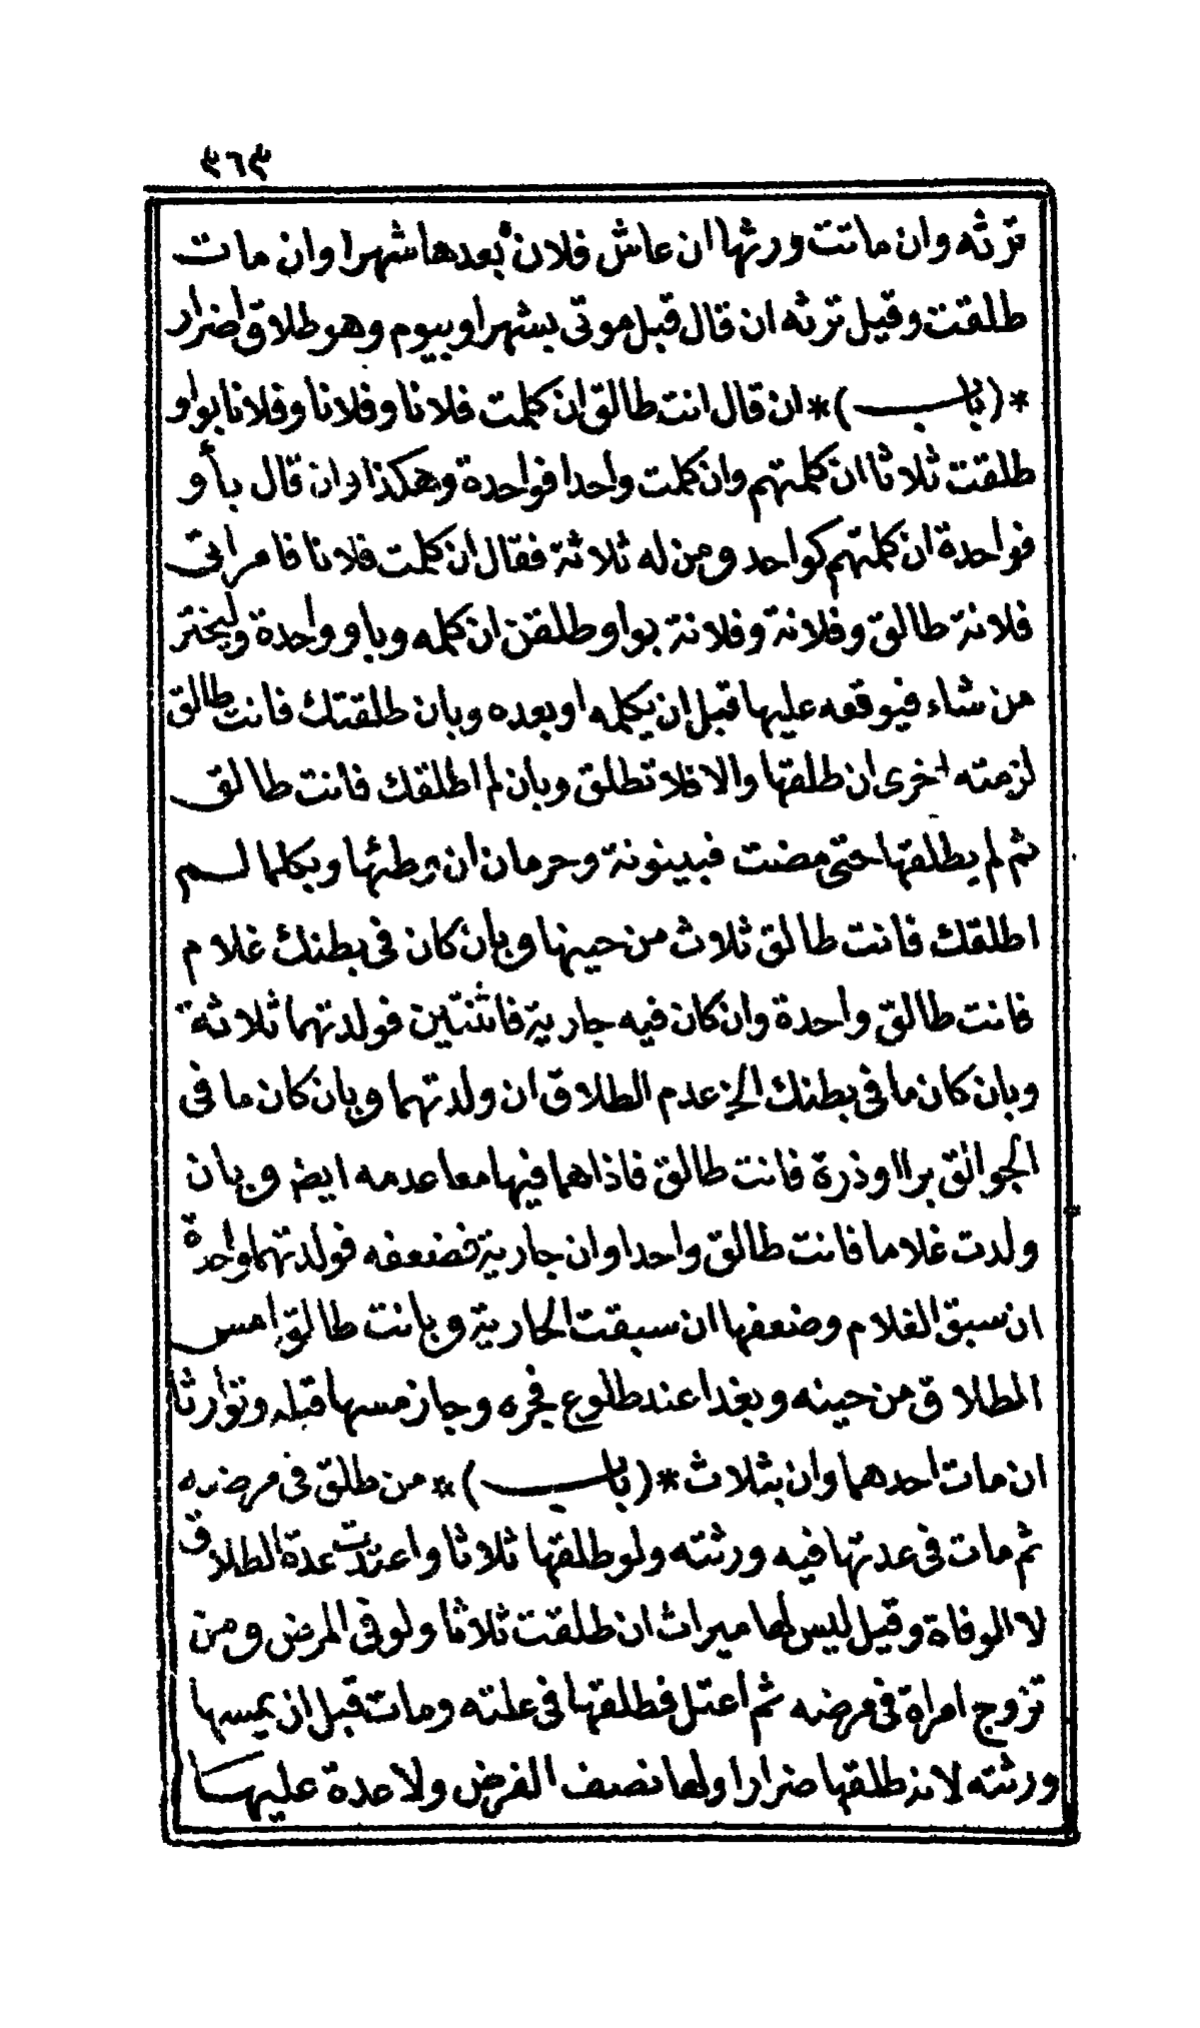 ٩٦٩
ترثه وان ماتت ورثها ان عاش فلان بعدها شهرا وان مات
طلقت وقيل ترثه ان قال قبل موتى بشهر او بيوم وهو طلاق اضرار
*(باب)* ان قال انت طالق ان كلمت فلانا وفلانا وفلانا بواو
طلقت ثلاثا ان كلمتهم وان كلمت واحدا فواحدة وهكذا وان قال بأو
فواحدة ان كلمتهم كواحد ومن له ثلاثة فقال ان كلمت فلانا فامراتى
فلانة طالق وفلانة وفلانة بواو طلقن ان كلمه وباو واحدة وليختر
من شاء فيوقعه عليها قبل ان يكلمه او بعده وبان طلقتك فانت طالق
لزمته اخرى ان طلقها والا فلا تطلق وبان لم اطلقك فانت طالق
ثم لم يطلقها حتى مضت فبينونة وحرمان ان وطئها وبكلما لم
اطلقك فانت طالق ثلاث من حينها وبان كان فى بطنك غلام
فانت طالق واحدة وان كان فيه جارية فاثنتين فولدتهما ثلاثة
وبان كان ما فى بطنك الخ عدم الطلاق ان ولدتهما وبان كان ما فى
الجوالق برا او ذرة فانت طالق فاذا هما فيها معا عدمه ايضا وبان
ولدت غلاما فانت طالق واحدا وان جارية فضعفه فولدتهما واحدة
ان سبق الغلام وضعفها ان سبقت الجارية وبانت طالق امس
الطلاق من حينه وبغدا عند طلوع فجره وجاز مسها قبله وتوارثا
ان مات احدهما وان بثلاث *(باب)* من طلق فى مرضه
ثم مات فى عدتها فيه ورثته ولو طلقها ثلاثا واعتدت عدة الطلاق
لا الوفاة وقيل ليس لها ميراث ان طلقت ثلاثا ولو فى المرض ومن
تزوج امراة فى مرضه ثم اعتل فطلقها فى علته ومات قبل ان يمسها
ورثته لانه طلقها ضرارا ولها نصف الفرض ولا عدة عليها